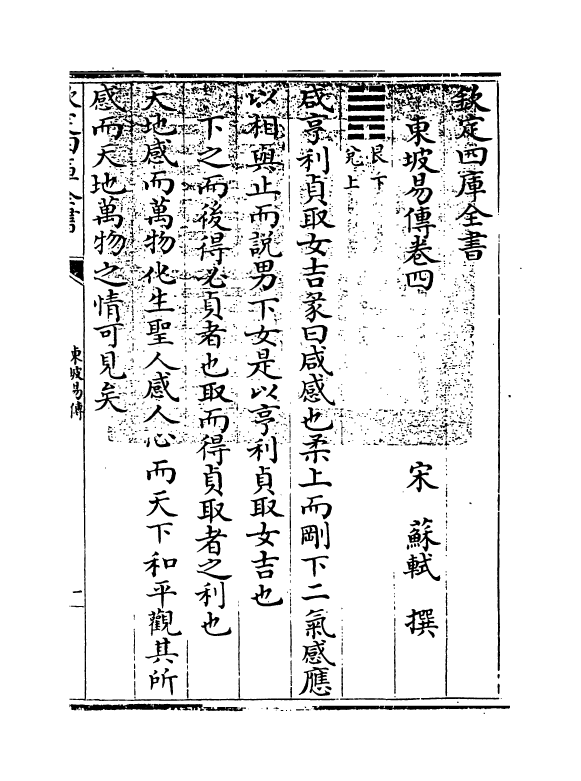 欽定四庫全書
東坡易傳卷四
宋 蘇軾 撰
艮下
兌上
咸亨利貞取女吉彖曰咸感也柔上而剛下二氣感應
以相與止而說男下女是以亨利貞取女吉也
下之而後得必貞者也取而得貞取者之利也
天地感而萬物化生聖人感人心而天下和平觀其所
感而天地萬物之情可見矣
欽定四庫全書
東坡易傳